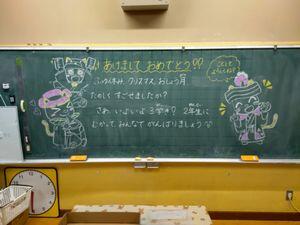 あけまして おめでとう!!
ふゆやすみ、クリスマス、おしょう月
たのしく すごせましたか?
さあ、いよいよ 3学き? 2年生に
むかって、みんなで がんばりましょう
ことしも
よろしくね!